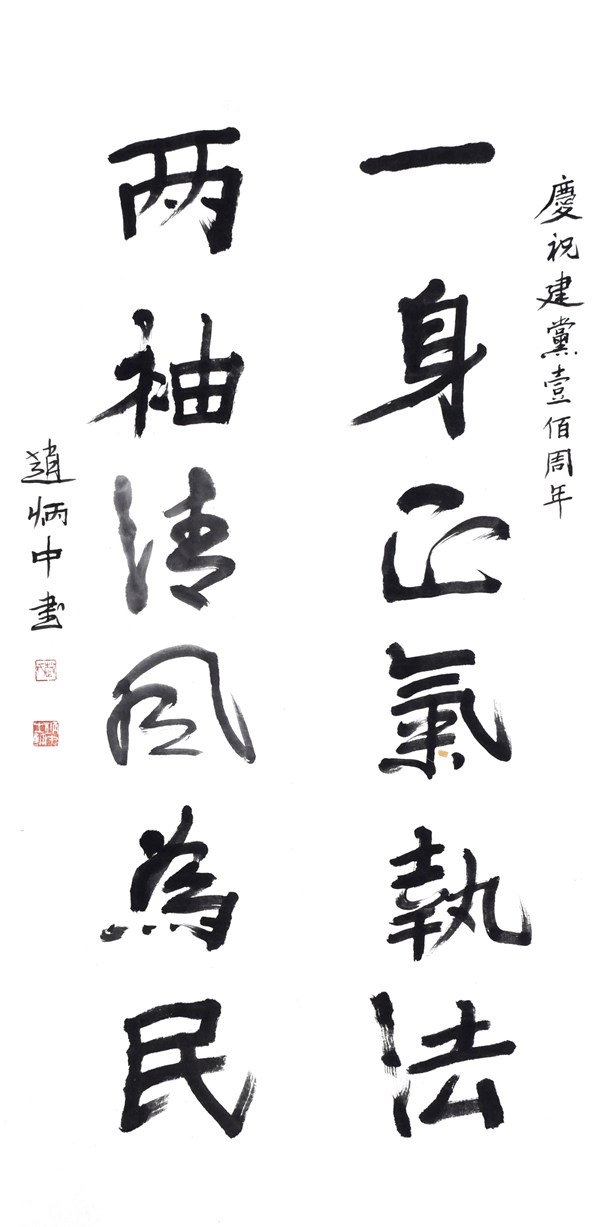 慶祝建黨壹佰周年
一身正氣執法
两袖清风為民
趙炳中書